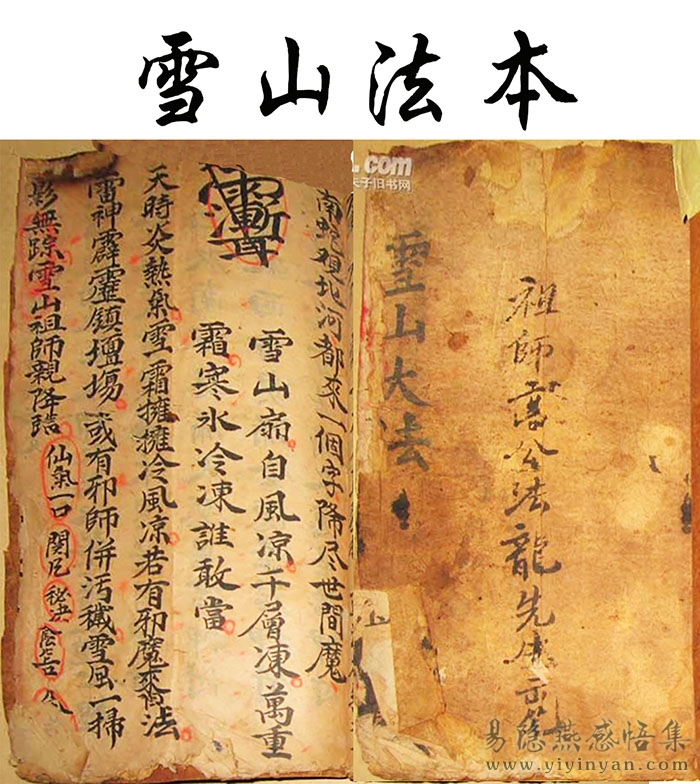 雪山法本
南蛇頭地河都來一個字降尽世間魔
雪山扇自風凉千層凍萬重
霜寒氷冷凍誰敢當
天時炎熱氣雪一霜擁擁冷風凉若有邪魔來法
雷神霹靂鎮壇場或有邪師併污穢雪風一掃
影無踪雪山祖師親降臨
仙氣一口
.com
夫子旧书网
雪山大法
祖師
公法龍先
易隐燕感悟集
www.yiyinyan.com